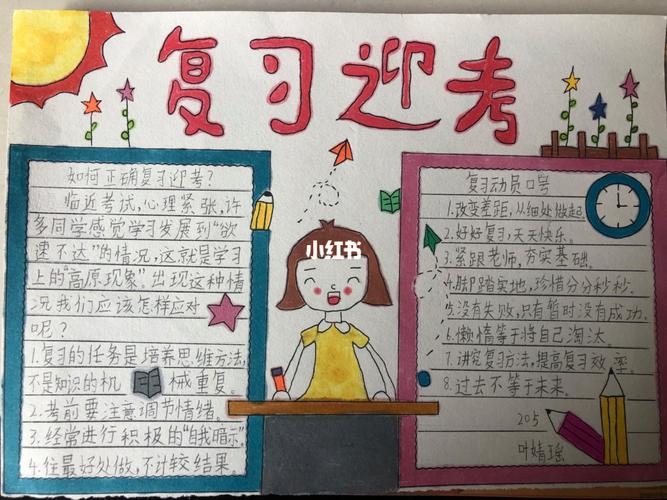 复习迎考
如何正确复习迎考?
临近考试,心理紧张,许
多同学感觉学习发展到“欲
速不达”的情况,这就是学习
上的“高原现象”。出现这种情
况我们应该怎样应对
呢?
1.复习的任务是培养思维方法,
不是知识的机械重复。
2.考前要注意调节情绪。
3.经常进行积极的“自我暗示”。
4.往最好处做,不计较结果。
小红书
复习动员口号
1.改变差距,从细处做起。
2.好好复习,天天快乐。
3.紧跟老师,夯实基础。
4.脚踏实地,珍惜分分秒秒。
5.没有失败,只有暂时没有成功。
6.懒惰等于将自己淘汰。
7.讲究复习方法,提高复习效率。
8.过去不等于未来。
205
叶婧瑶